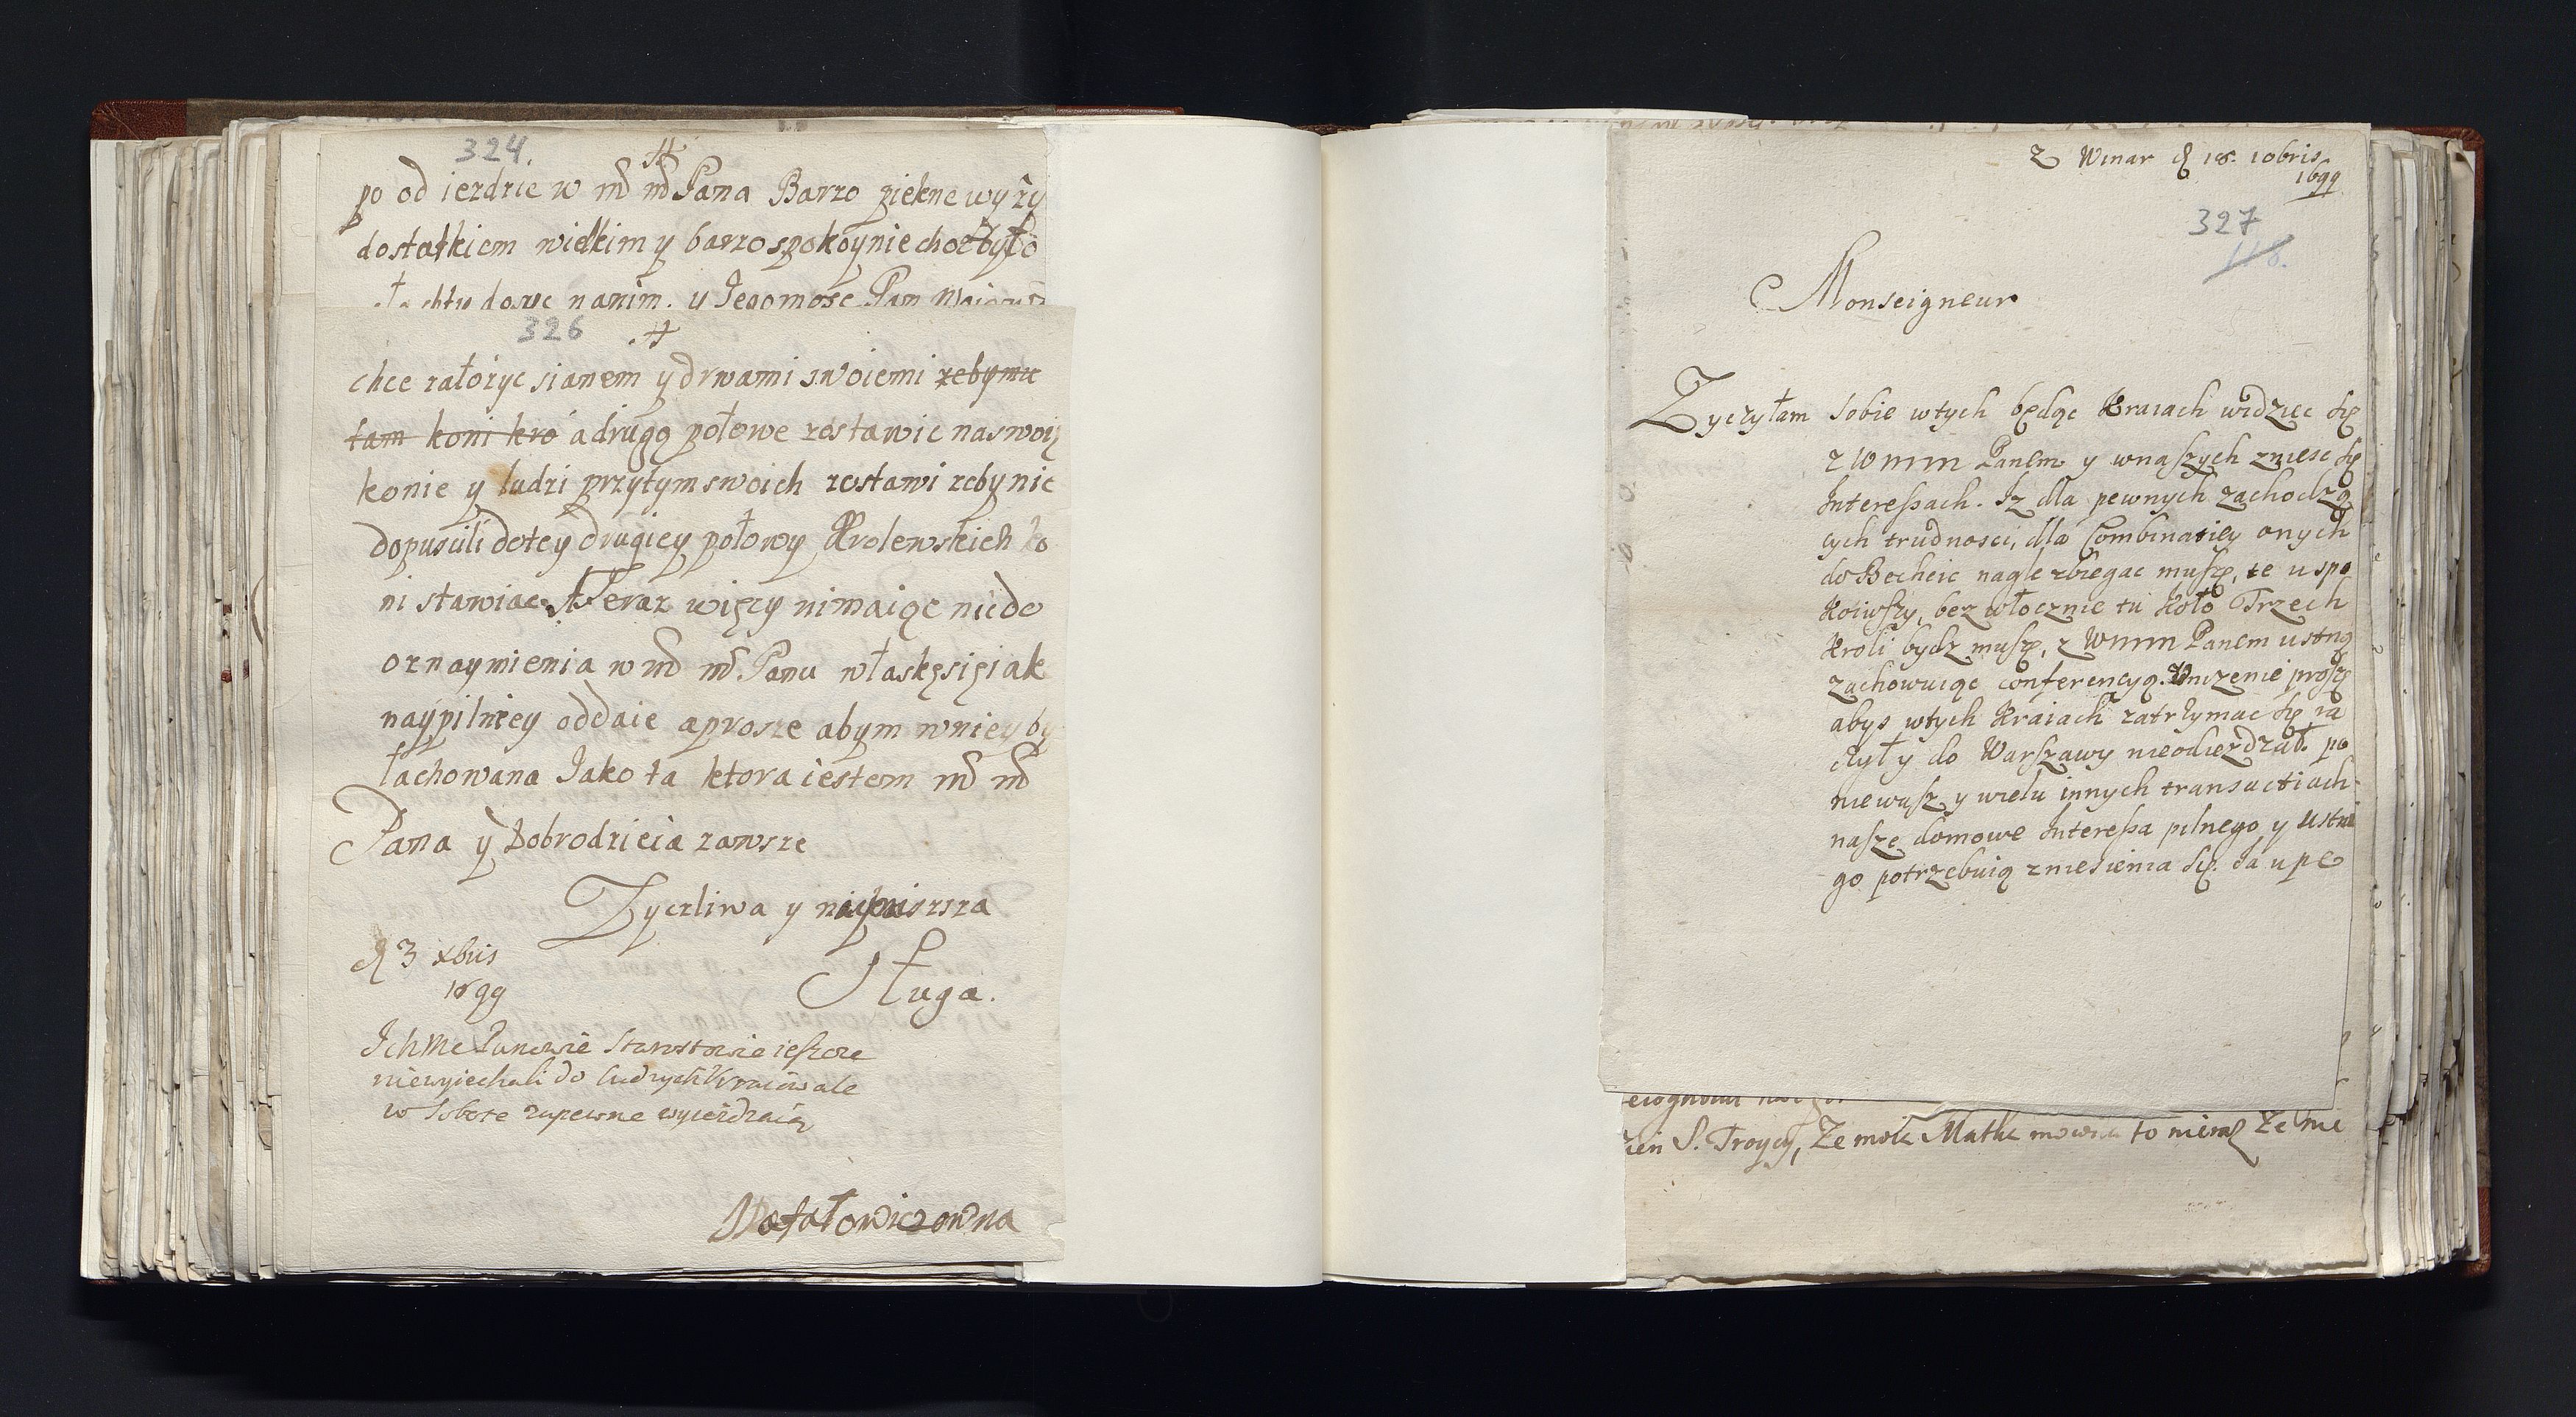 324.
po od iezdzie w md md Pana Barzo piekne wyży
dostatkiem wielkim y barzo spokoynie choć było
nanim. u Jegomosc Pan
326
chce załozyc sianem y drwami swoiemi zebymu
tam koni kro a drugą połowe zostawic na swoię
konie y ludzi przytym swoich zostawi zeby nie
dopuscili do tey drugiey połowy Krolewskich ko
ni stawiac. Teraz więcy nimaiąc nic do
oznaymienia w md md Panu w łaskę się iak
naypilniey oddaie a prosze abym w niey by
ła chowana Jako ta ktora iestem md md
Pana y Dobrodzieia zawsze
Zyczliwa y nayniszsza
d 3 xbris
1699
Sługa.
Ich Me Panowie Starostowie ieszcze
niewyiechali do Cudzych Kraiow ale
w Sobote zapewne wyieżdzaią
Matałowiczowna
z Winar d 18. 10bris
1699
327
118.
Monseigneur
Zyczyłam sobie wtych będąc Kraiach widziec się
z Wmm Panem y wnaszych zniesc się
Interessach. Iz dla pewnych zachodzą
cych trudnosci, dla Combinatiey onych
do Becheic nagle zbiegac muszę, te uspo
koiwszy, bez włocznie tu koło Trzech
Kroli bydz muszę, z Wmm Panem ustną
zachowuiąc conferencyą. Unizenie proszę
abys wtych Kraiach zatrzymac się ra
czył y do Warszawy nieodiezdzał. po
niewasz y wielu innych transactiach
nasze domowe Interessa pilnego y ustne
go potrzebuią zniesienia się. Ja upe
S. Troycy, Ze mole Matke to niemasz Ze nie